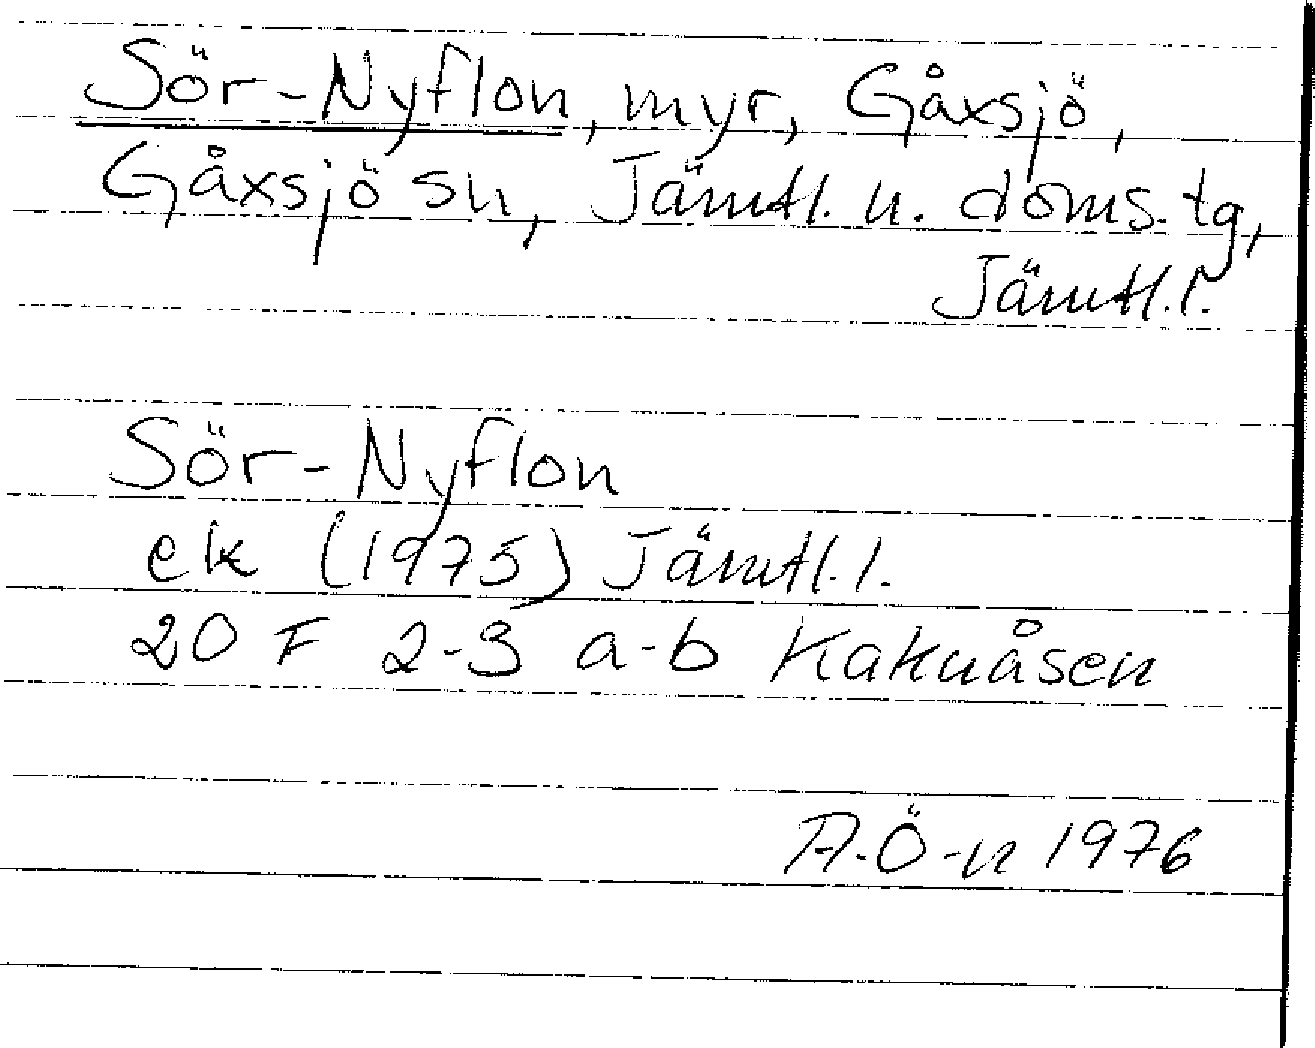 Sör-Nyflon, myr, Gåxsjö,
Gåxsjö sn, Jämtl. n. doms. tg,
Jämtl. l.
Sör-Nyflon
ek (1975) Jämtl. l.
20 F 2-3 a-b Kaknåsen
A.Ö-n 1976